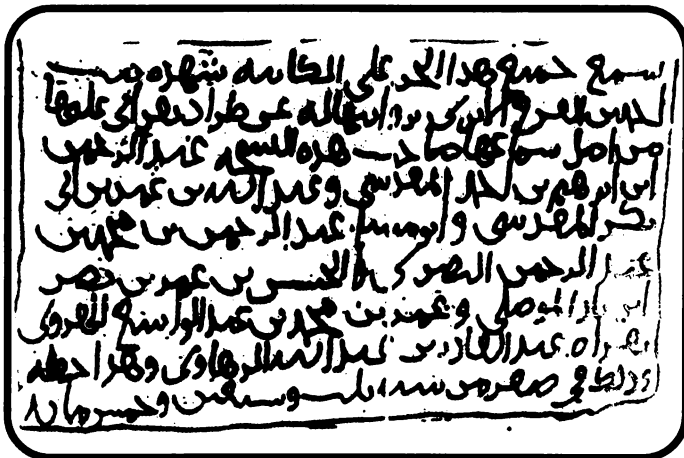 سمع جميع هذا الجز على الكاتبه شهده بنت
احمد بن الفرج الابري بروايتها له عن طراد بقراتي عليها
من اصل سماعها صاحب هذه النسخه عبد الرحمن
ابن ابرهيم بن احمد المقدسي وعبد الله بن عمر بن ابي
بكر المقدسي و عبد الرحمن بن محمد بن
عبد الرحمن المصري و بن عمر بن نصر
ابن الموصلي و بن محمد بن عبد الواسع الهروي
بقراه عبد القادر بن عبد الله الرهاوي وهذا خطه
وذلك في صفر من سنه ثلث وسبعين وخمس مائه